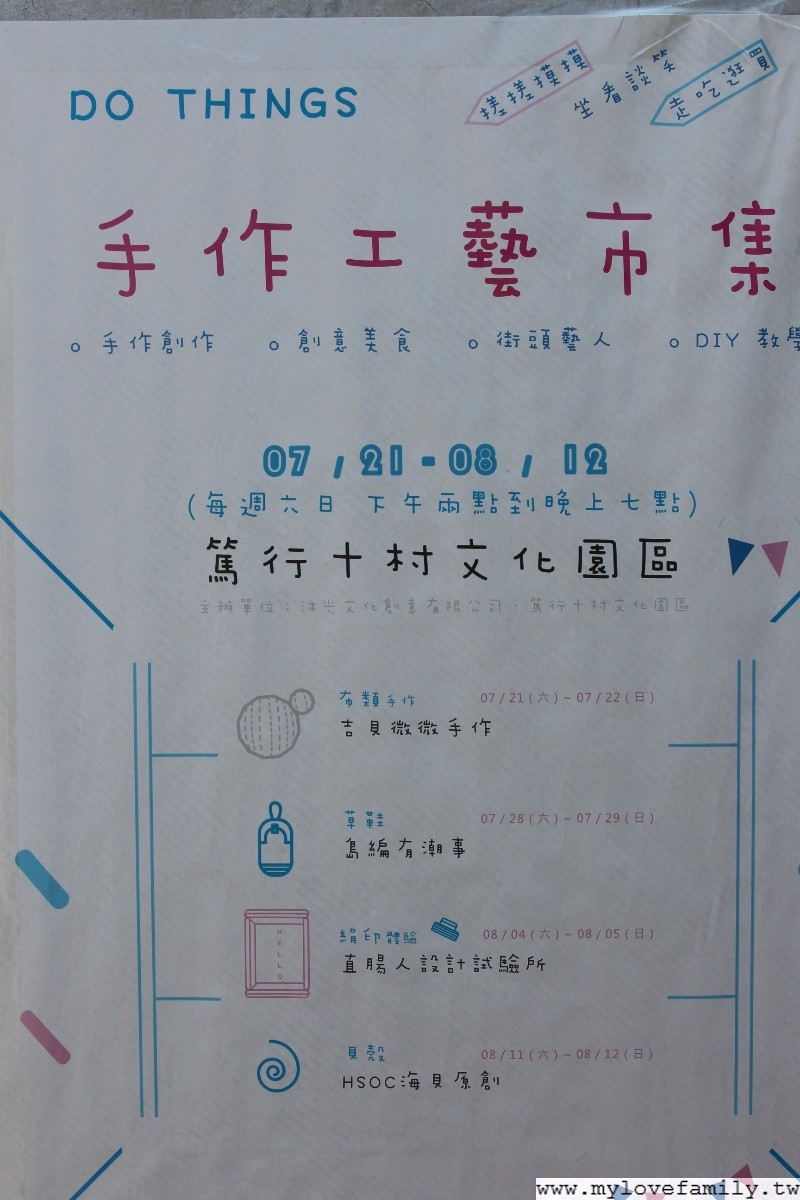 DO THINGS
搓搓摸摸
坐看談笑
走吃逛買
手作工藝市集
手作創作 創意美食 街頭藝人 DIY 教學
07 / 21 - 08 / 12
(每週六日 下午兩點到晚上七點)
篤行十村文化園區
主辦單位：沐光文化創意有限公司、篤行十村文化園區
布類手作 07/21(六)~07/22(日)
吉貝微微手作
草鞋 07/28(六)~07/29(日)
島編有潮事
HELLO
絹印體驗 08/04(六)~08/05(日)
直腸人設計試驗所
貝殼 08/11(六)~08/12(日)
HSOC海貝原創
www.mylovefamily.tw